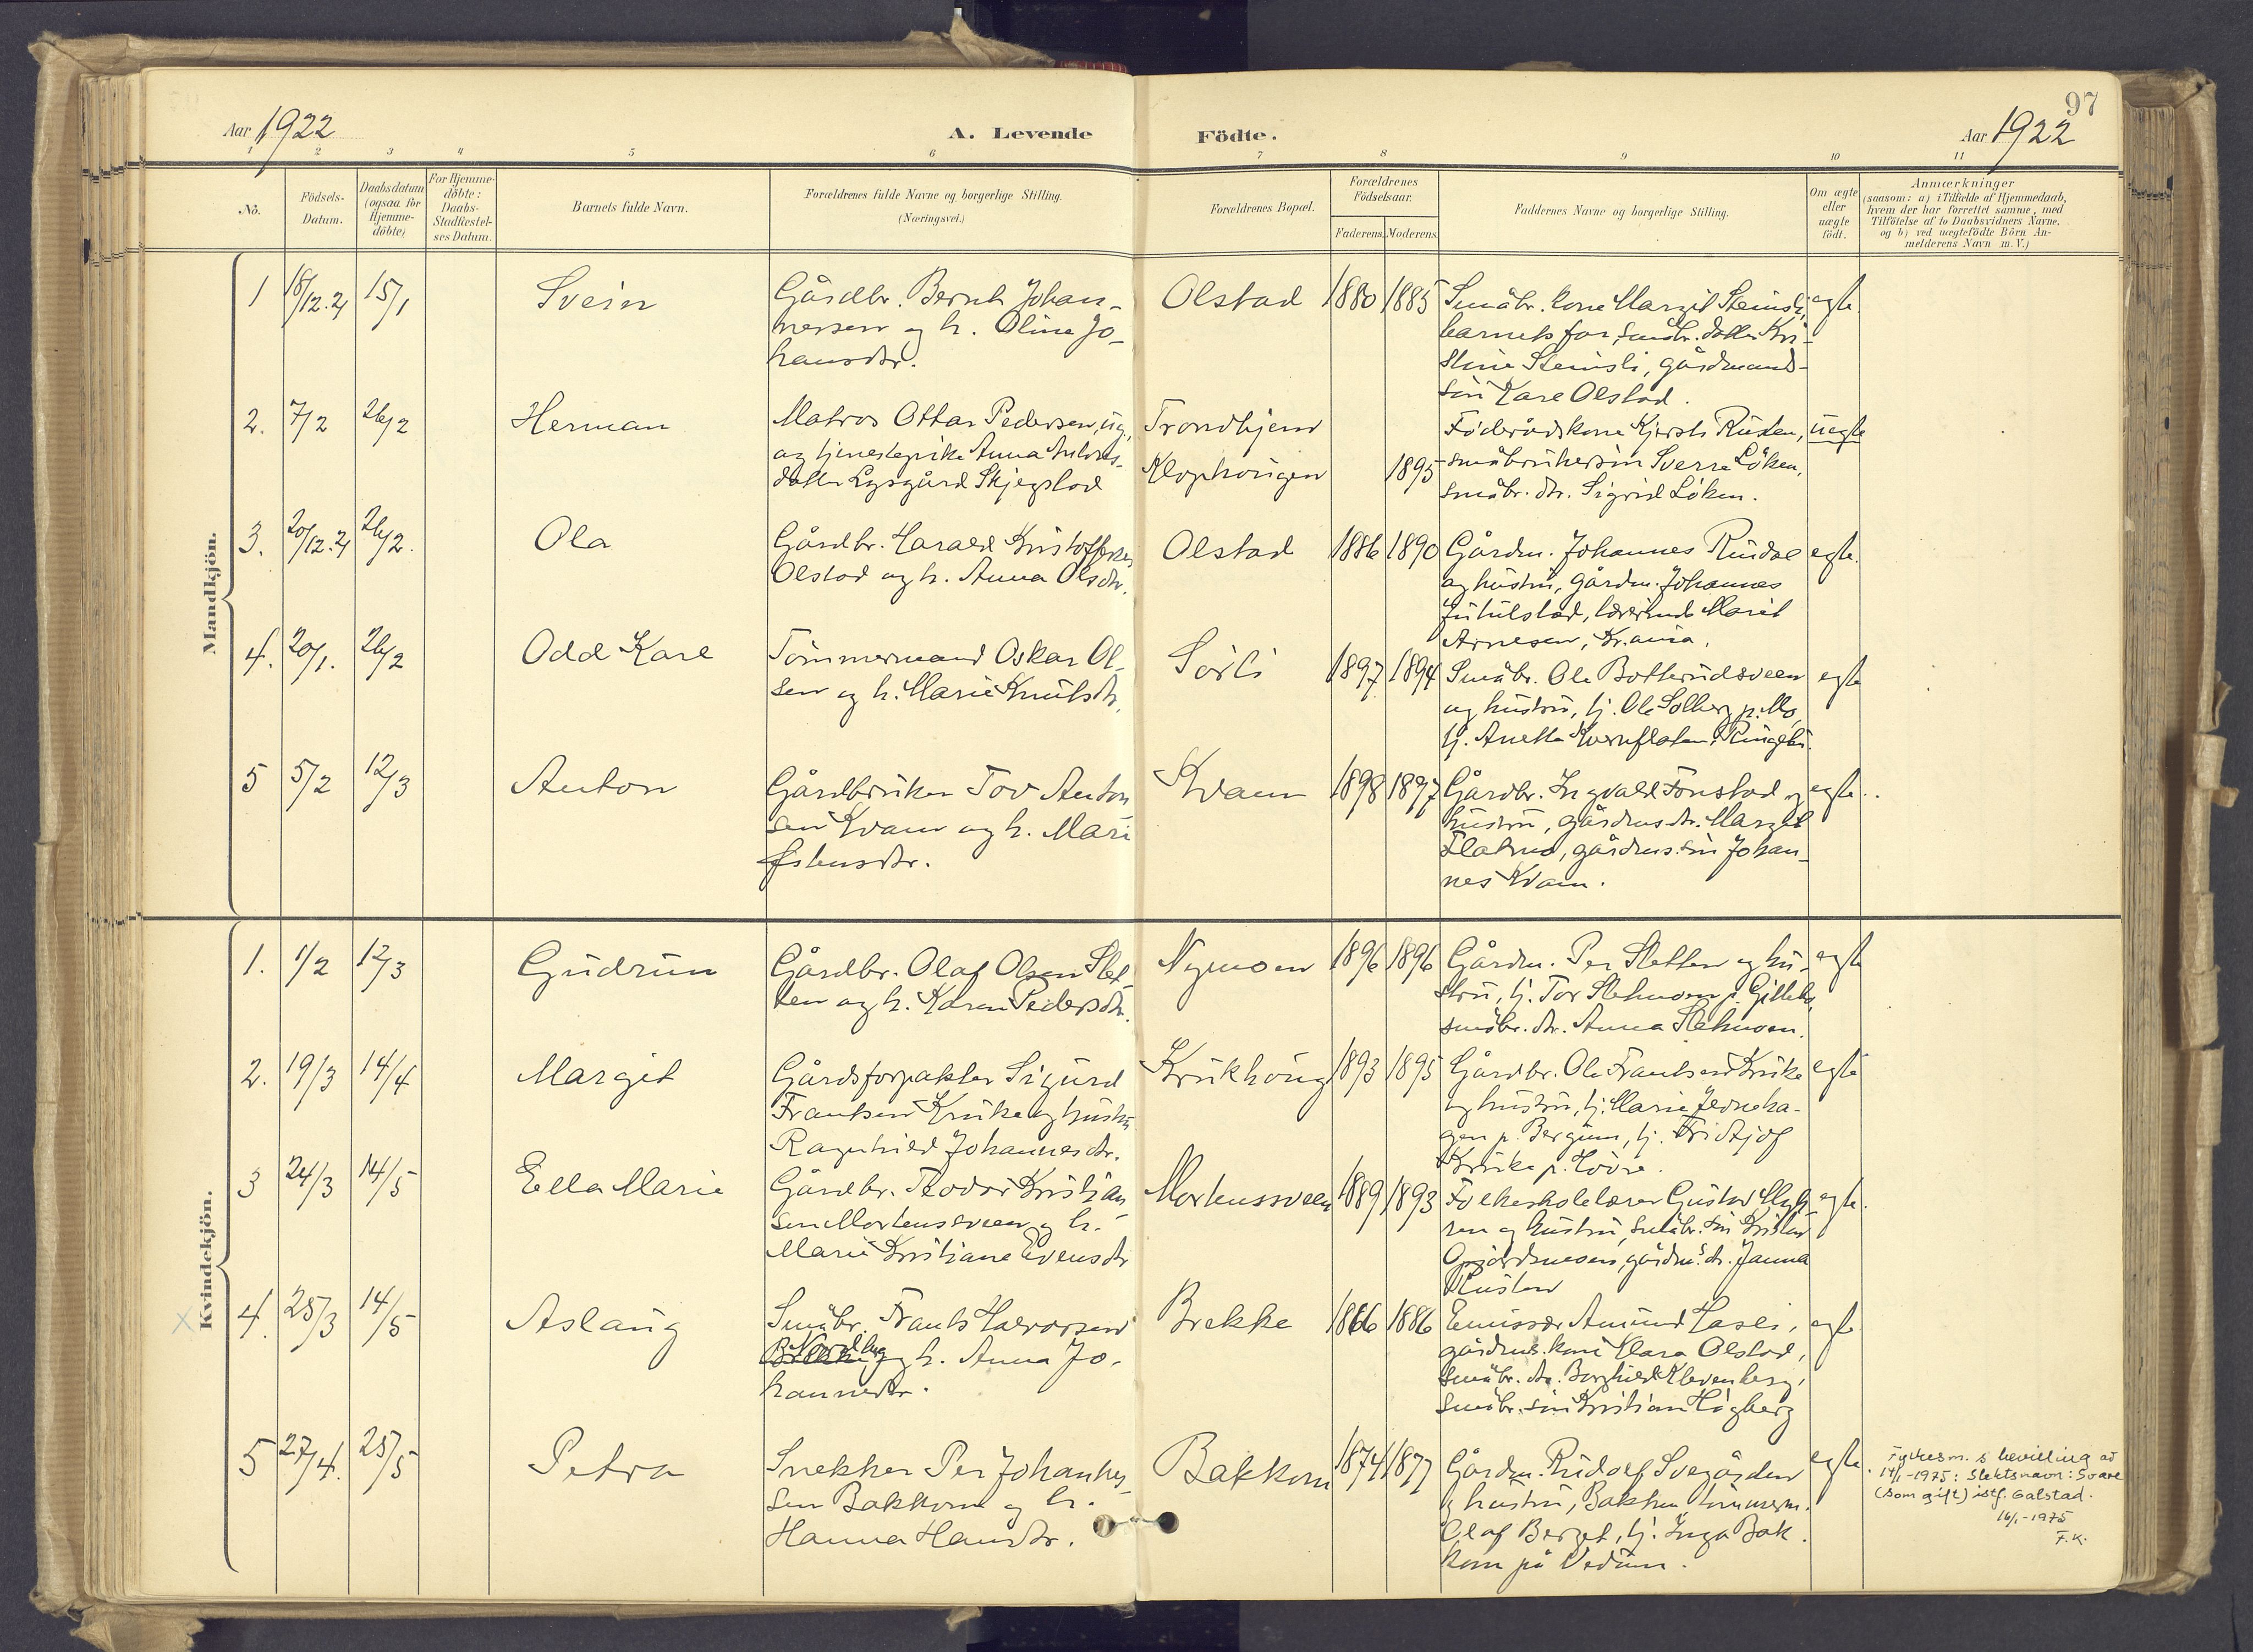 97
Aar 1922
A. Levende
Födte.
Aar 1922
1 2 3 4 5 6 7 8 9 10 11
No.
Födsels-
Datum.
Daabsdatum
(ogsaa for
Hjemme-
döbte)
For Hjemme-
döbte:
Daabs-
Stadfæstel-
ses Datum.
Barnets fulde Navn.
Forældrenes fulde Navne og borgerlige Stilling.
(Næringsvei.)
Forældrenes Bopæl.
Forældrenes
Födselsaar.
Faderens. Moderens.
Faddernes Navne og borgerlige Stilling.
Om ægte
eller
uægte
födt.
Anmærkninger
(saasom: a) i Tilfælde af Hjemmedaab,
hvem der har forrettet samme, med
Tilföielse af to Daabsvidners Navne.
og b) ved uægtefödte Börn An-
melderens Navn m. V.)
Mandkjön.
1 18/12.21 15/1
Svein
Gårdbr. Bernt Johan-
nessen og h. Oline Jo-
hansdtr.
Olstad
1880 1885
Småbr. kone Margit Steinsli,
barnets far, småbr. datter Kri-
stine Steinsli, gårdmands-
sön Kåre Olstad.
egte.
2. 7/2 26/2
Herman
Matros Ottar Pedersen, ug,
og tjenestepike Anna
datter Lysgård Skjegstad
Trondhjem
Klophaugen
1895
Föderådskone Kjersti Rusten,
småbrukersön Sverre Löken,
småbr. dtr. Sigrid Löken.
uegte
3. 20/12.21 26/2.
Ola
Gårdbr. Harald Kristoffersen
Olstad og h. Anna Olsdtr.
Olstad
1886 1890
Gårdm. Johannes Rindal
og hustru, gårdm. Johannes
Jutulstad, lærerinde Marit
Arnesen, Kr.ania.
egte.
4. 20/1. 26/2
Odd Kare
Tömmermand Oskar Ol-
sen og h. Marie Knutsdtr.
Sörli
1897 1894
Småbr. Ole Botterudsveen
og hustru, tj. Ole Solberg p. Mo,
tj. Anette Kvernflaten, Ringebu.
egte
5 5/2 12/3
Anton
Gårdbruker Tov Anton
sen Kvam og h. Mari
Kvam
1898 1897
Gårdbr. Ingvald Fonstad og
hustru, gårdmsdtr. Margit
Flatmo, gårdms.sön Johan-
nes Kvam.
egte.
Kvindekjön.
1. 1/2 12/3
Gudrun
Gårdbr. Olaf Olsen Slet-
ten og h. Karen Pedersdtr.
Nymoen
1896 1896
Gårdm. Per Sletten og hu-
stru, tj. Tor Sletmoen p. Gillebo,
småbr. dtr. Anna Sletmoen.
egte
2. 19/3 14/4
Margit
Gårdsforpakter Sigurd
Frantsen Kruke og hustru
Ragnhild Johannesdtr.
Krukhaug
1893 1895
Gårdbr. Ole Frantsen Kruke
og hustru, tj. Marie
gen p. Bergum, tj. Fridtjof
Kruke p. Hovre.
egte
3 24/3 14/5
Ella Marie
Gårdbr. Teodor Kristian-
sen Mortenssveen og h.
Marie Kristiane Evensdtr
Mortenssveen
1889 1893
Folkeskolelærer Gustav
ren og hustru, småbr. sön Kristian
gårdm.s dtr. Janna
Rusten
egte.
x 4. 25/3 14/5
Aslaug
Småbr. Frants Halvorsen
Nordhug
Brekke og h. Anna Jo-
hannesdtr.
Brekke
1866 1886
Emissær Amund Hasli,
gårdmds. kone Klara Olstad,
småbr. dtr. Borghild Klevenberg,
småbr. sön Kristian Högberg
egte
5 27/4. 25/5
Petra
Snekker Per Johannes-
sen Bakkom og h.
Hanna Hansdtr.
Bakkom
1874 1877
Gårdm. Rudolf Svegården
og hustru, Bakken tömmerm.
Olaf Berget, tj. Inga Bak-
kom på Vedum.
egte.
Fylkesm. s bevilling av
14/1-1975: Slektsnavn: Svare
(som gift) istf. Galstad.
16/1-1975
F.K.